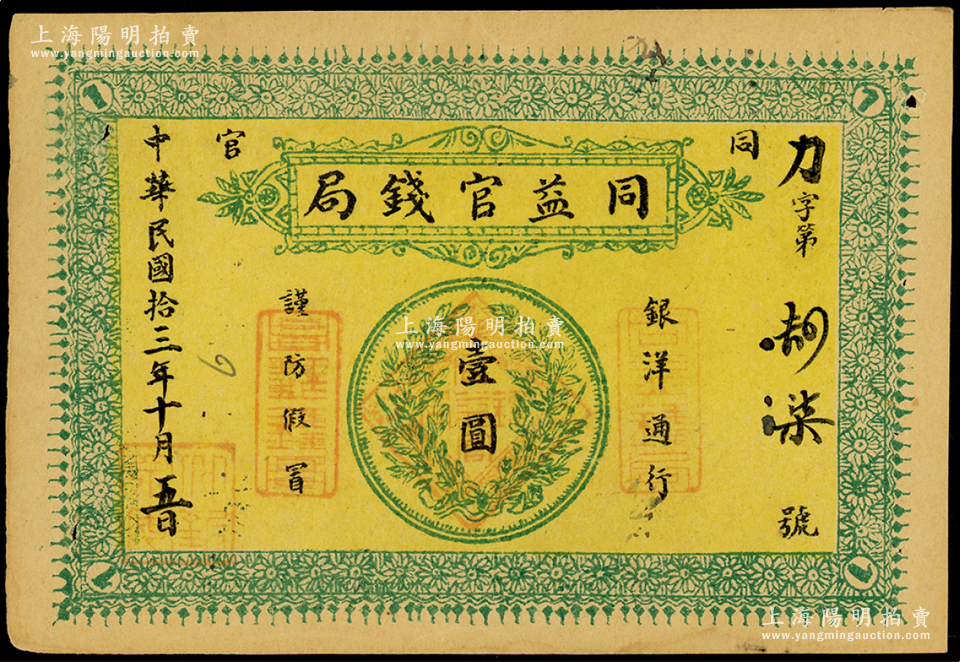 上海陽明拍賣
www.yangmingauction.com
同 官
同益官錢局
力字第 柒號
銀洋通行
壹圓
謹防假冒
中華民國拾三年十月五日
1
1
1
上海陽明拍賣
www.yangmingauction.com
上海陽明拍賣
www.yangmingauction.com